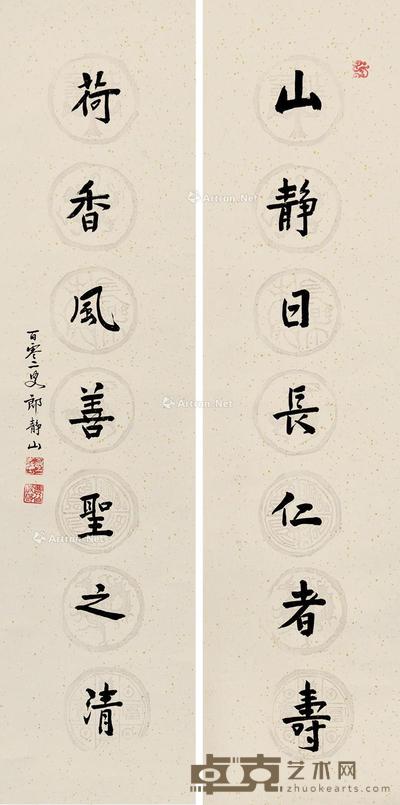 山靜日長仁者壽
荷香風善聖之清
百零二叟郎靜山
Artron.Net
卓克艺术网
zhuokearts.com